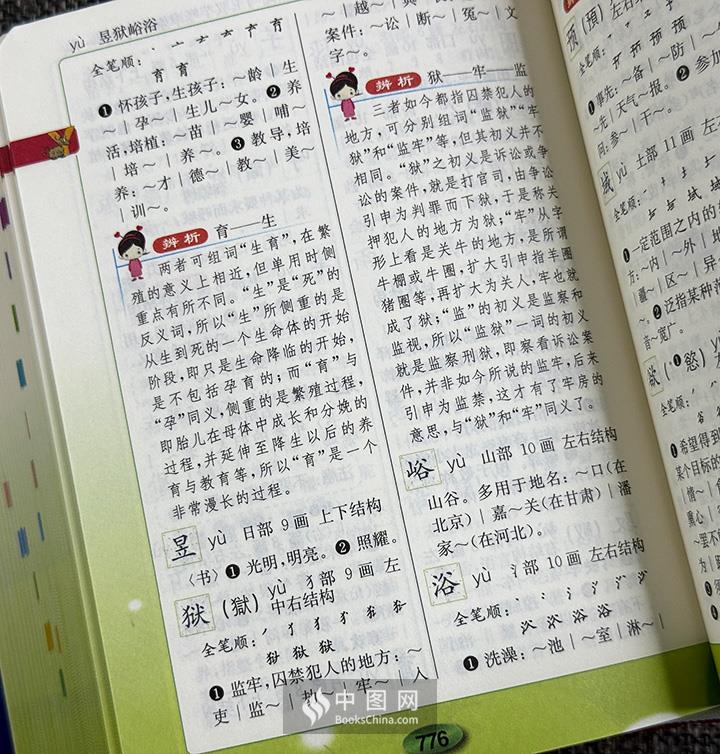 yù 昱狱峪浴
全笔顺:
育 育
❶ 怀孩子,生孩子:～龄｜生
～｜孕～｜生儿～女。❷ 养
活,培植:～苗｜～婴｜哺～
｜培～｜养～。❸ 教导,培
养:～才｜德～｜教～｜美～
｜训～。
辨析 育——生
两者可组词“生育”,在繁
殖的意义上相近,但单用时侧
重点有所不同。“生”是“死”的
反义词,所以“生”所侧重的是
从生到死的一个生命体的开始
阶段,即只是生命降临的开始,
是不包括孕育的;而“育”与
“孕”同义,侧重的是繁殖过程,
即胎儿在母体中成长和分娩的
过程,并延伸至降生以后的养
育与教育等,所以“育”是一个
非常漫长的过程。
昱 yù 日部 9画 上下结构
〈书〉❶ 光明,明亮。❷ 照耀。
狱(獄) yù 犭部 9画 左
中右结构
全笔顺:
狱 狱 狱
❶ 监牢,囚禁犯人的地方:～
吏｜监～｜地～｜牢～｜入
案件:～讼｜断～｜冤～｜文
字～。
辨析 狱——牢——监
三者如今都指囚禁犯人的
地方,可分别组词“监狱”“牢
狱”和“监牢”等,但其初义并不
相同。“狱”之初义是诉讼或争
讼的案件,就是打官司,由争讼
引申为判罪而下狱,于是称关
押犯人的地方为狱;“牢”从字
形上看是关牛的地方,是所谓
牛棚或牛圈,扩大引申指羊圈
猪圈等,再扩大为关人,牢也就
成了狱;“监”的初义是监察和
监视,所以“监狱”一词的初义
就是监察刑狱,即察看诉讼案
件,并非如今所说的监牢,后来
引申为监禁,这才有了牢房的
意思,与“狱”和“牢”同义了。
峪 yù 山部 10画 左右结构
山谷。多用于地名:～口(在
北京)｜嘉～关(在甘肃)｜潘
家～(在河北)。
浴 yù 氵部 10画 左右结构
全笔顺:
浴 浴
❶ 洗澡:～池｜～室｜淋～｜
776
预(預)
左右结
全笔顺:
❶事先:～备｜～防｜～
～先｜天气～报。❷ 参加
同:参～｜干～。
域 yù 土部 11画 左
全笔顺:
一定范围之内的
方:～内｜～外｜地
疆～｜区～｜异
❷ 泛指某种范
音～宽广。
欲(❶慾) yù
全笔顺:
❶希望得到
某个目标的
中图网
BooksChina.com